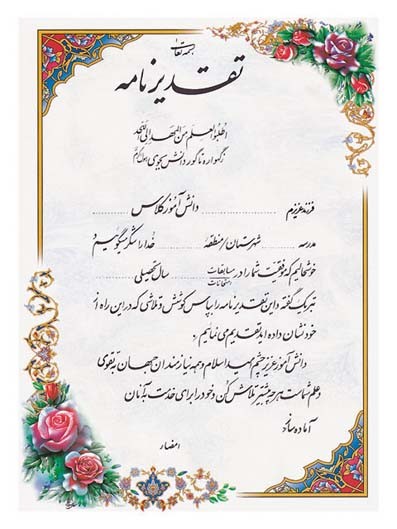 بسمه تعالی
تقدیرنامه
اطلبوا العلم من المهد الی اللحد
زگهواره تا گور دانش بجوی
فرزند عزیزم .......... دانش‌آموز کلاس ..........
مدرسه .......... شهرستان/منطقه .......... خدا را شکر می‌گوییم و
خوشحالیم که موفقیت شما را در مسابقات امتحانات .......... سال تحصیلی ..........
تبریک گفته و این تقدیرنامه را بپاس کوشش و تلاشی که در این راه از
خود نشان داده‌اید تقدیم می‌نمائیم.
دانش‌آموز عزیز چشم امید اسلام و همه نیازمندان جهان به تقوی
و علم شماست هر چه بیشتر تلاش کن و خود را برای خدمت به آنان
آماده ساز
امضاء